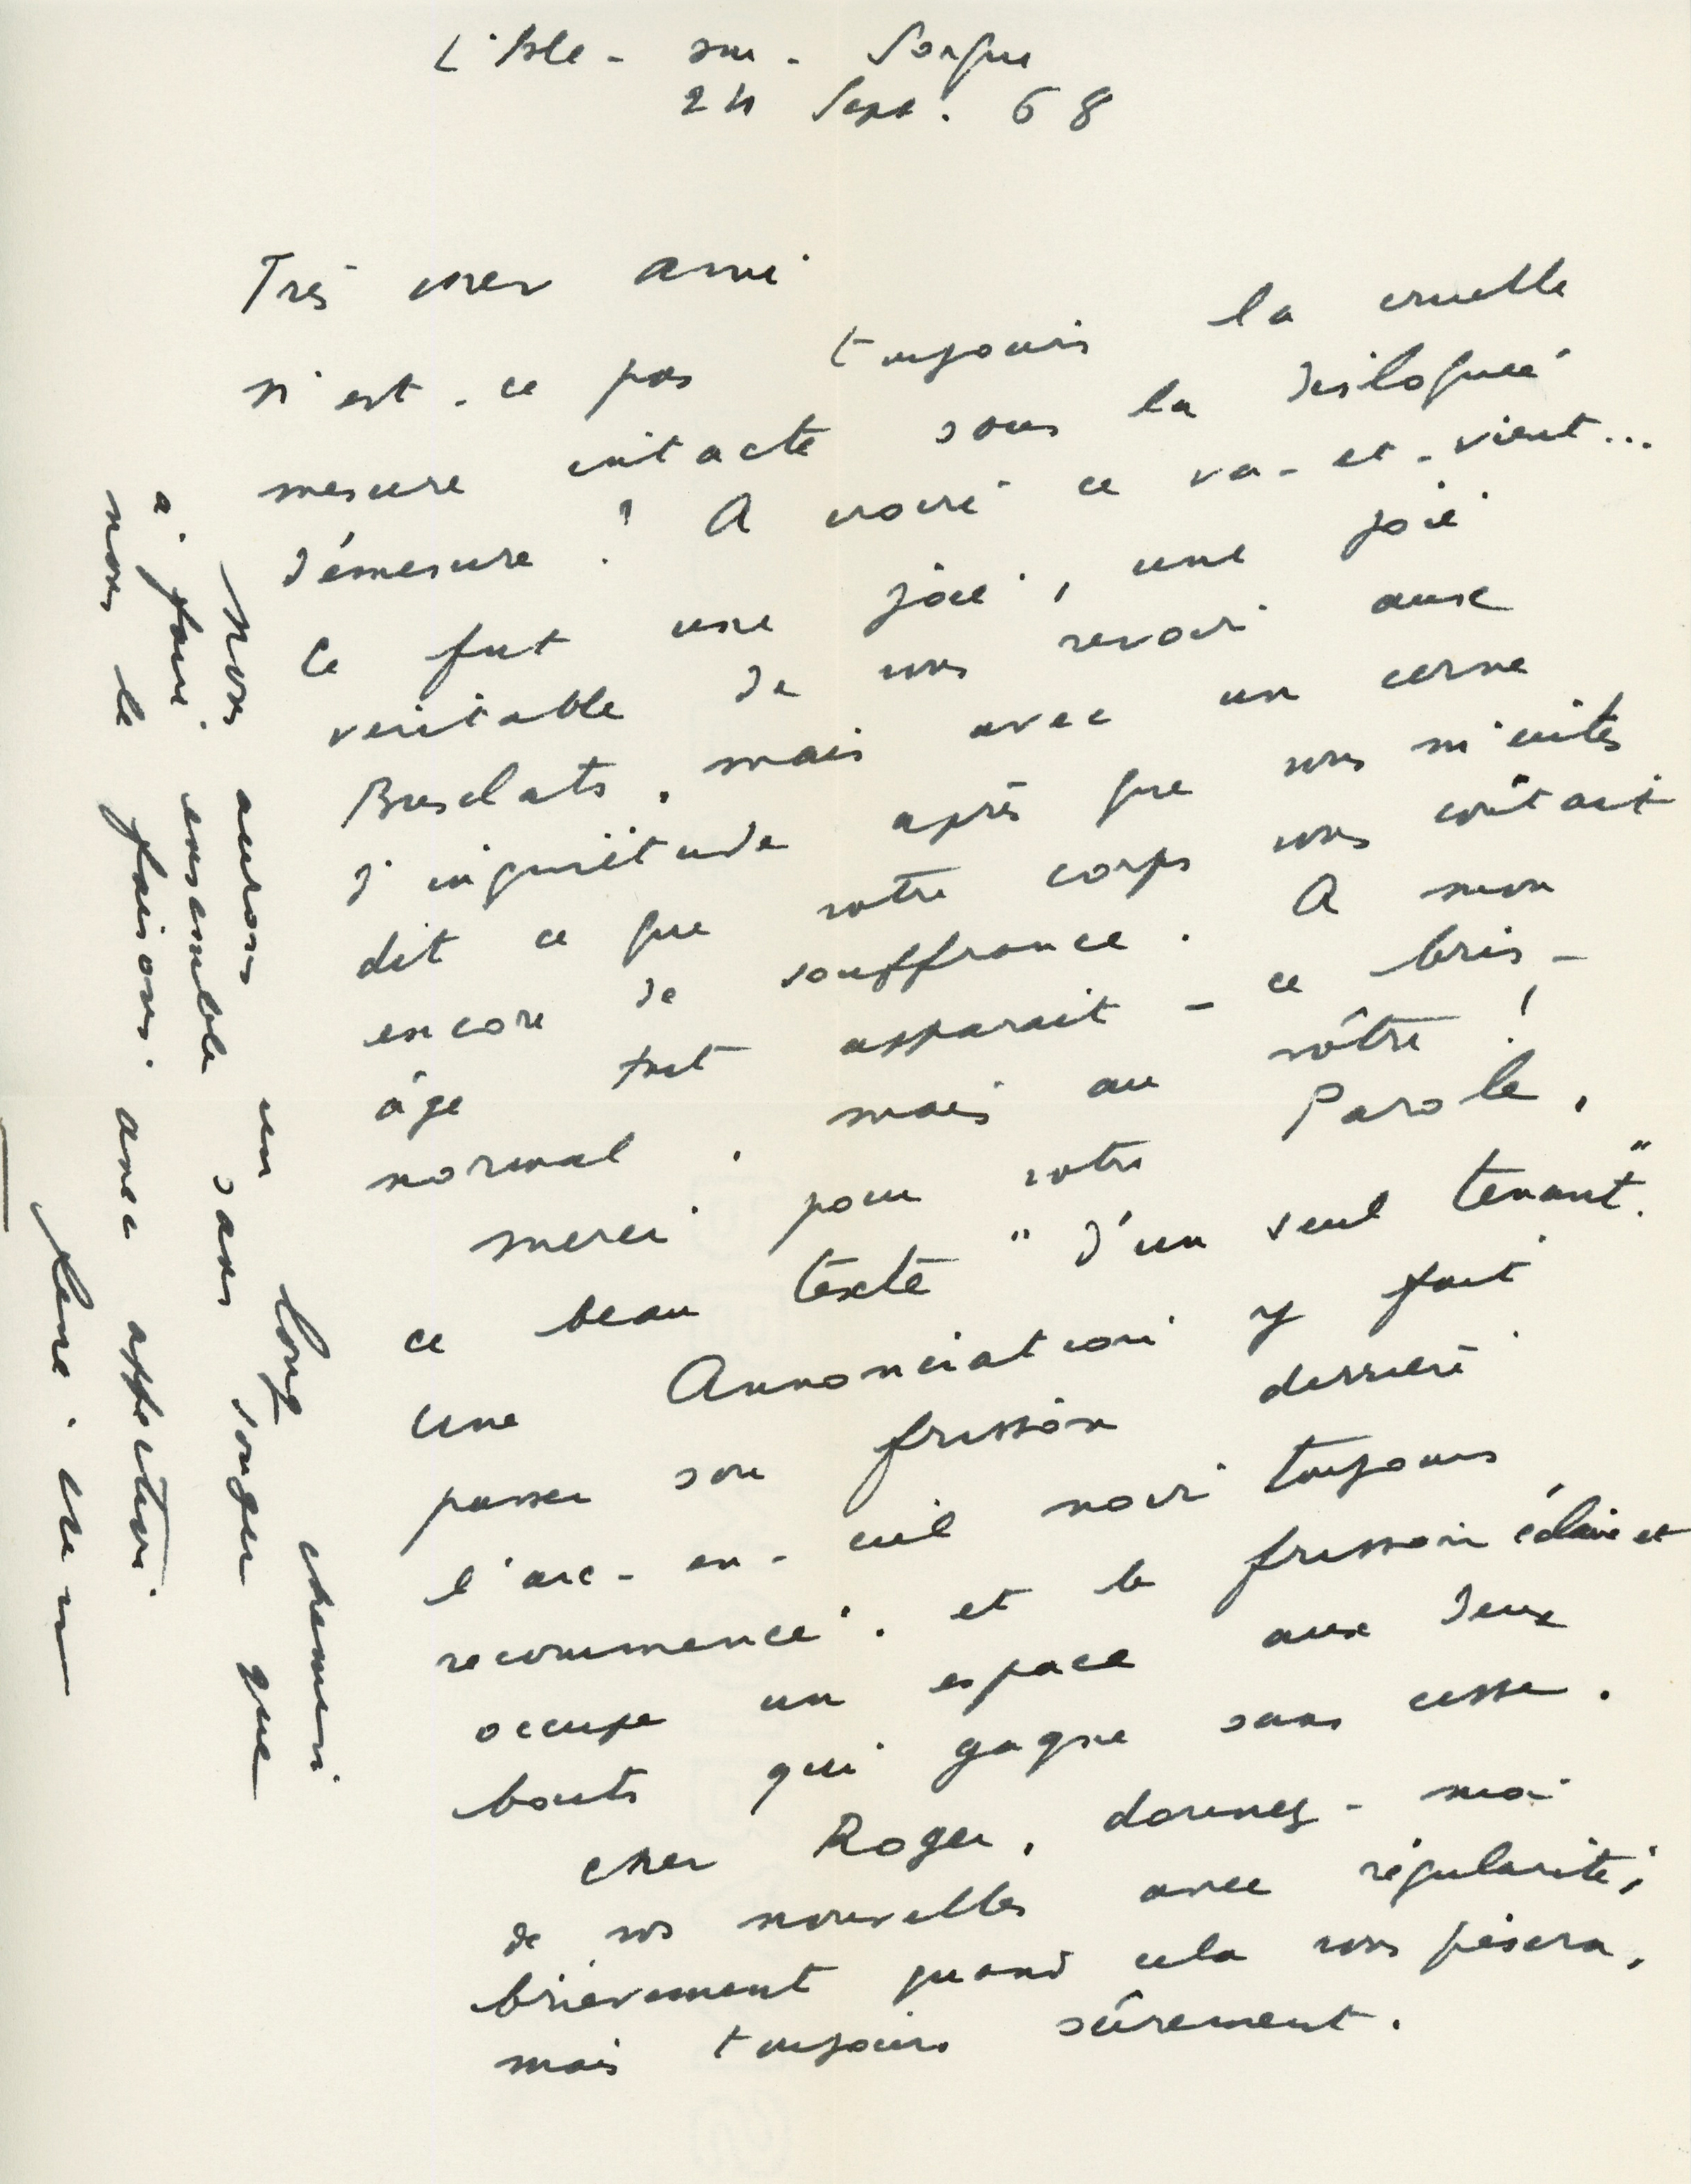 L'Isle-sur-Sorgue
24 Sept. 68
Très cher ami
N'est-ce pas toujours la cruelle
mesure intacte sous la disloquée
démesure ? A croire ce va-et-vient...
Ce fut une joie, une joie
véritable de vous revoir aux
Busclats, mais avec un cerne
d'inquiétude après que vous m'eûtes
dit ce que votre corps vous coûtait
encore de souffrance. A mon
âge tout apparait - ce bris -
normal, mais au vôtre !
Merci pour votre Parole,
ce beau texte "d'un seul tenant".
Une Annonciation y fait
passer son frisson derrière
l'arc-en-ciel noir toujours
recommencé. et le frisson éclaire et
occupe un espace aux deux
bouts qui gagne sans cesse.
Cher Roger, donnez-moi
de vos nouvelles avec régularité;
brièvement quand cela vous pèsera,
mais toujours sûrement.
Nous aurons un long chemin
à faire ensemble sans songer que
nous le faisons. avec affection.
René. Char